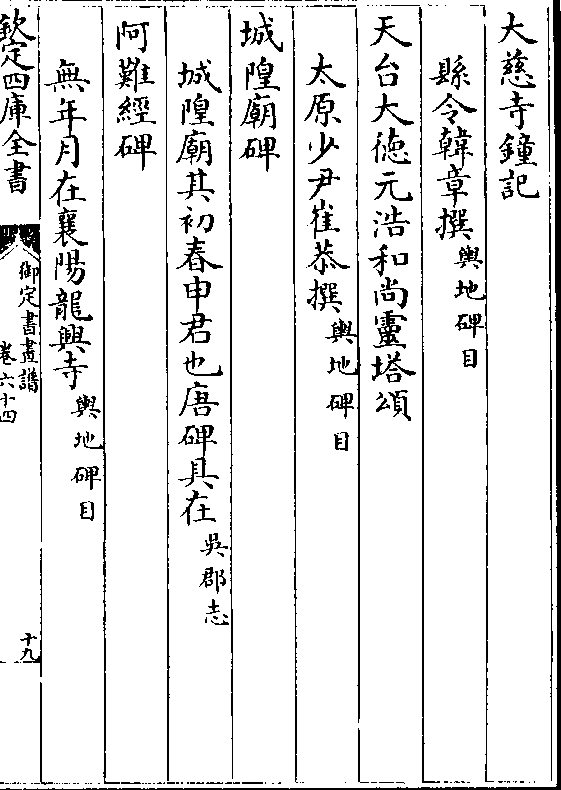 大慈寺鐘記
縣令韓章撰輿地碑目
天台大徳元浩和尚靈塔頌
太原少尹崔恭撰輿地碑目
城隍廟碑
城隍廟其初春申君也唐碑具在吳郡志
阿難經碑
無年月在襄陽龍興寺輿地碑目
欽定四庫全書
御定書畫譜
卷六十四
十九